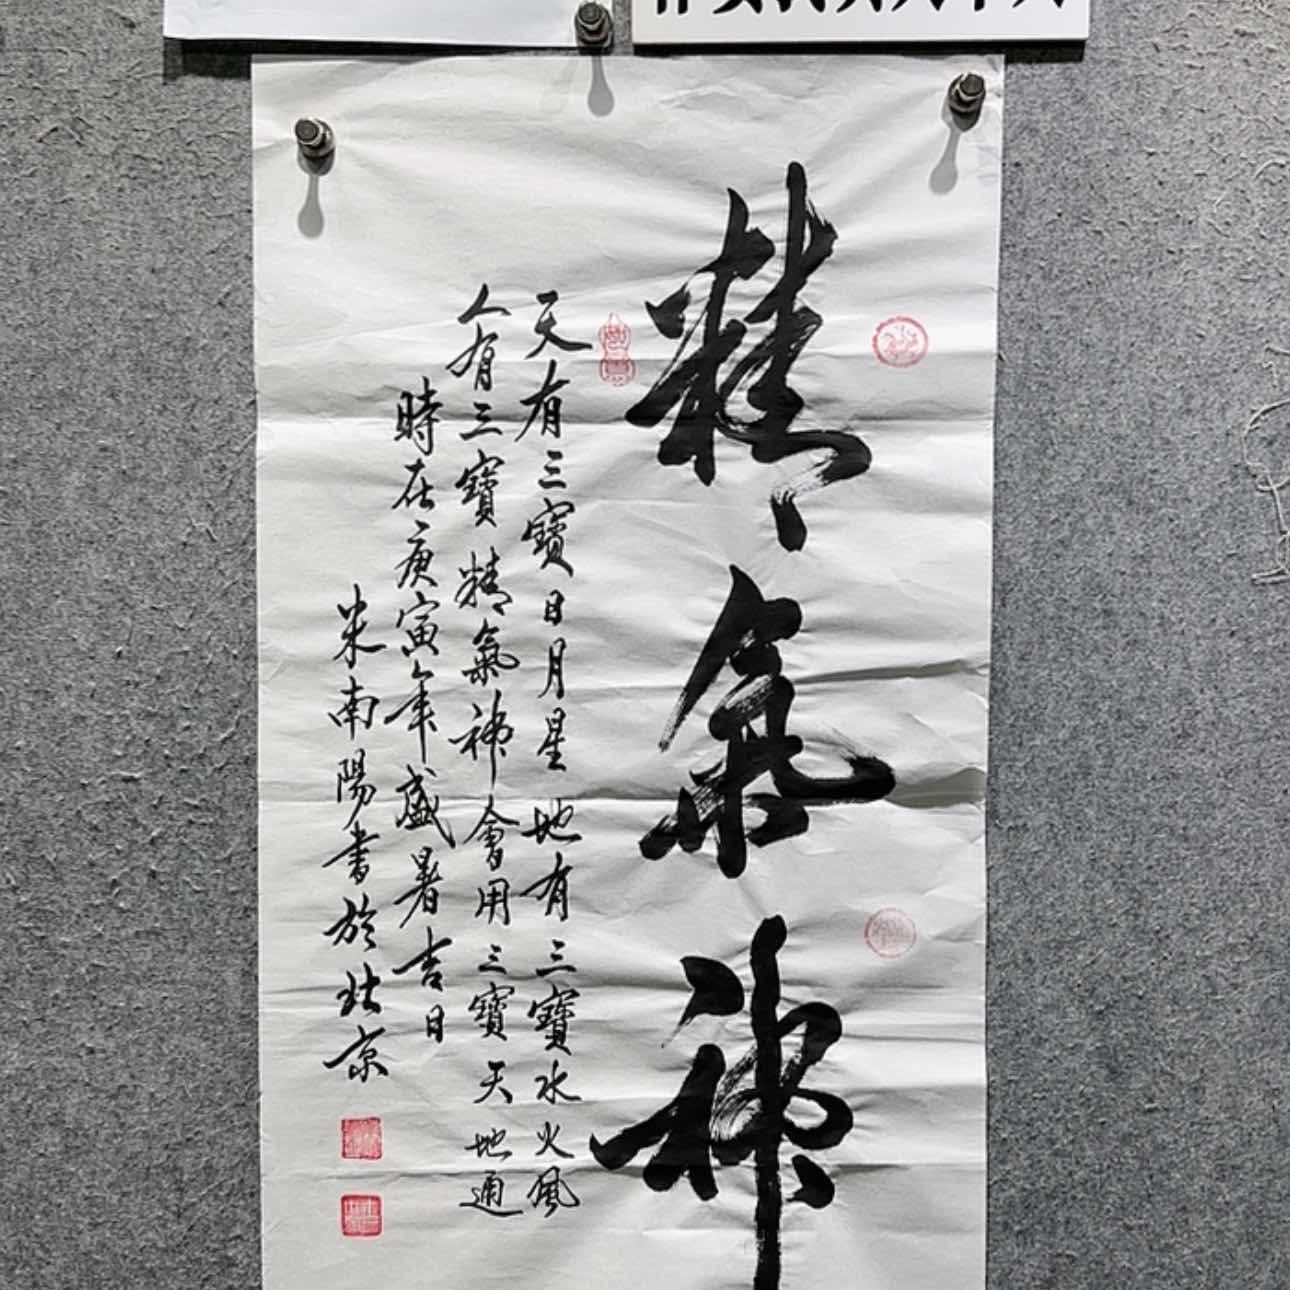 精氣神
天有三寶日月星 地有三寶水火風
人有三寶精氣神 會用三寶天地通
時在庚寅年盛暑吉日
米南陽書於北京